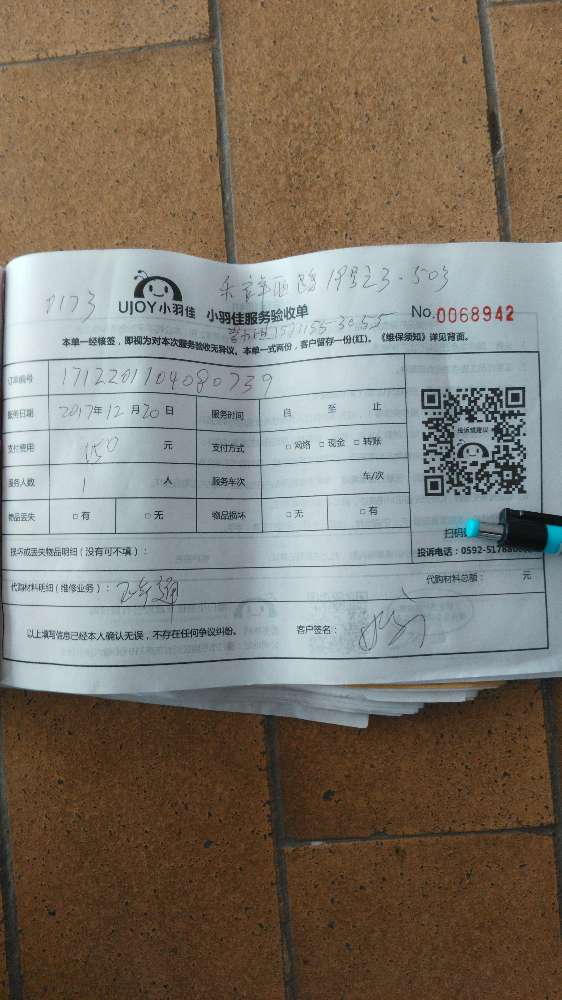 禾祥西路19号之3-503
0173
UJOY小羽佳 小羽佳服务验收单 No.0068942
本单一经核签，即视为对本次服务验收无异议。本单一式两份，客户留存一份(红)。《维保须知》详见背面。
订单编号
服务日期 2017年12月20日 服务时间 自 至 止
支付费用 150 元 支付方式 □ 网络 □ 现金 □ 转账
投诉或建议
服务人数 1 人 服务车次 车/次
物品丢失 □ 有 □ 无 物品损坏 □ 无 □ 有
扫码
投诉电话：0592-5178
损坏或丢失物品明细（没有可不填）：
代购材料明细（维修业务）： 代购材料总额： 元
以上填写信息已经本人确认无误，不存在任何争议纠纷。 客户签名：